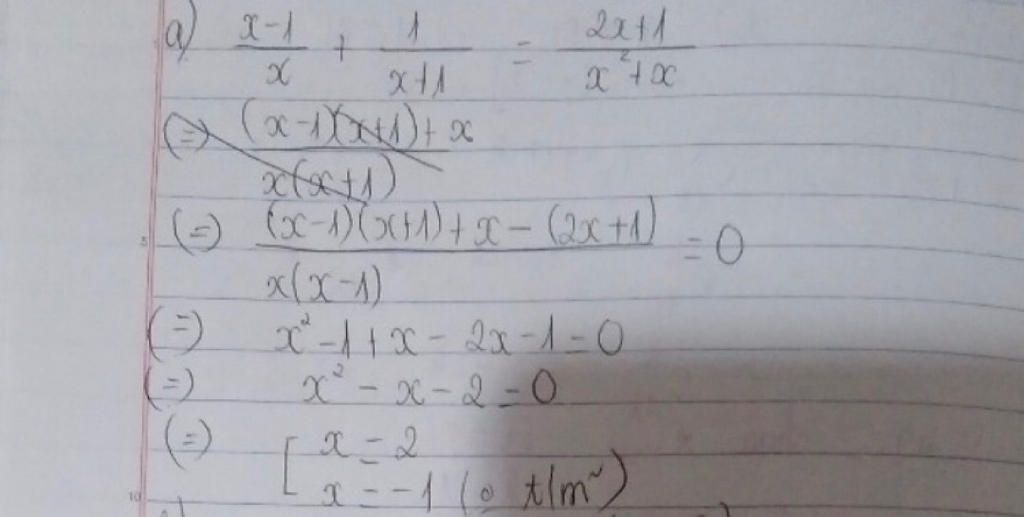 a) (x-1)/x + 1/(x+1) = (2x+1)/(x²+x)
(=) ((x-1)(x+1)+x)/(x(x+1))
(=) ((x-1)(x+1)+x-(2x+1))/(x(x-1)) = 0
(=) x²-1+x-2x-1=0
(=) x²-x-2=0
(=) [ x=2
x=-1 (o t/m~)